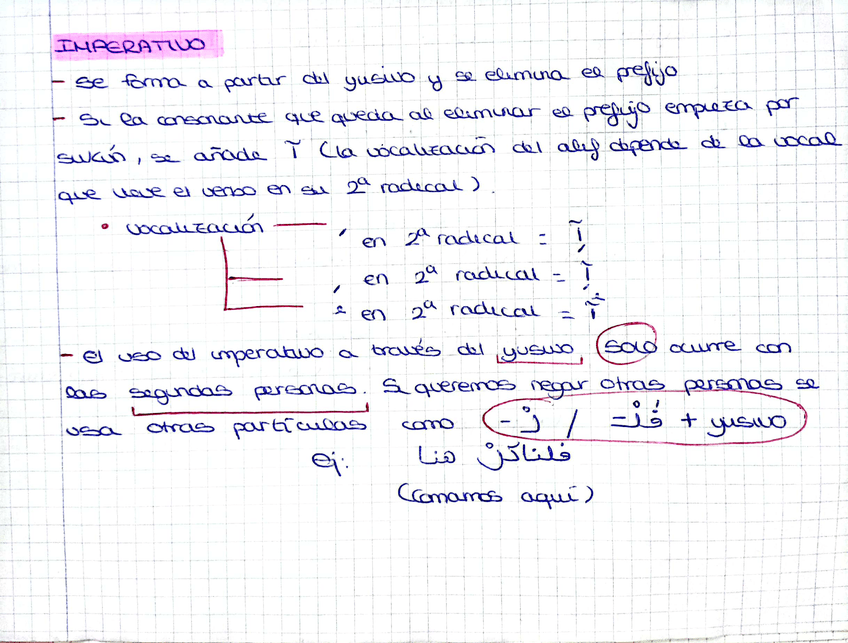 IMPERATIVO
- Se forma a partir del yusivo y se elimina el prefijo
- Si la consonante que queda al eliminar el prefijo empieza por
sukún, se añade آ (la vocalización del alif depende de la vocal
que lleve el verbo en su 2ª radical).
• vocalización ـَ en 2ª radical =
ـِ en 2ª radical =
ـُ en 2ª radical =
- el uso del imperativo a través del yusivo solo ocurre con
las segundas personas. Si queremos negar otras personas se
usa otras partículas como / + yusivo
ej: هنا
(Comamos aquí)